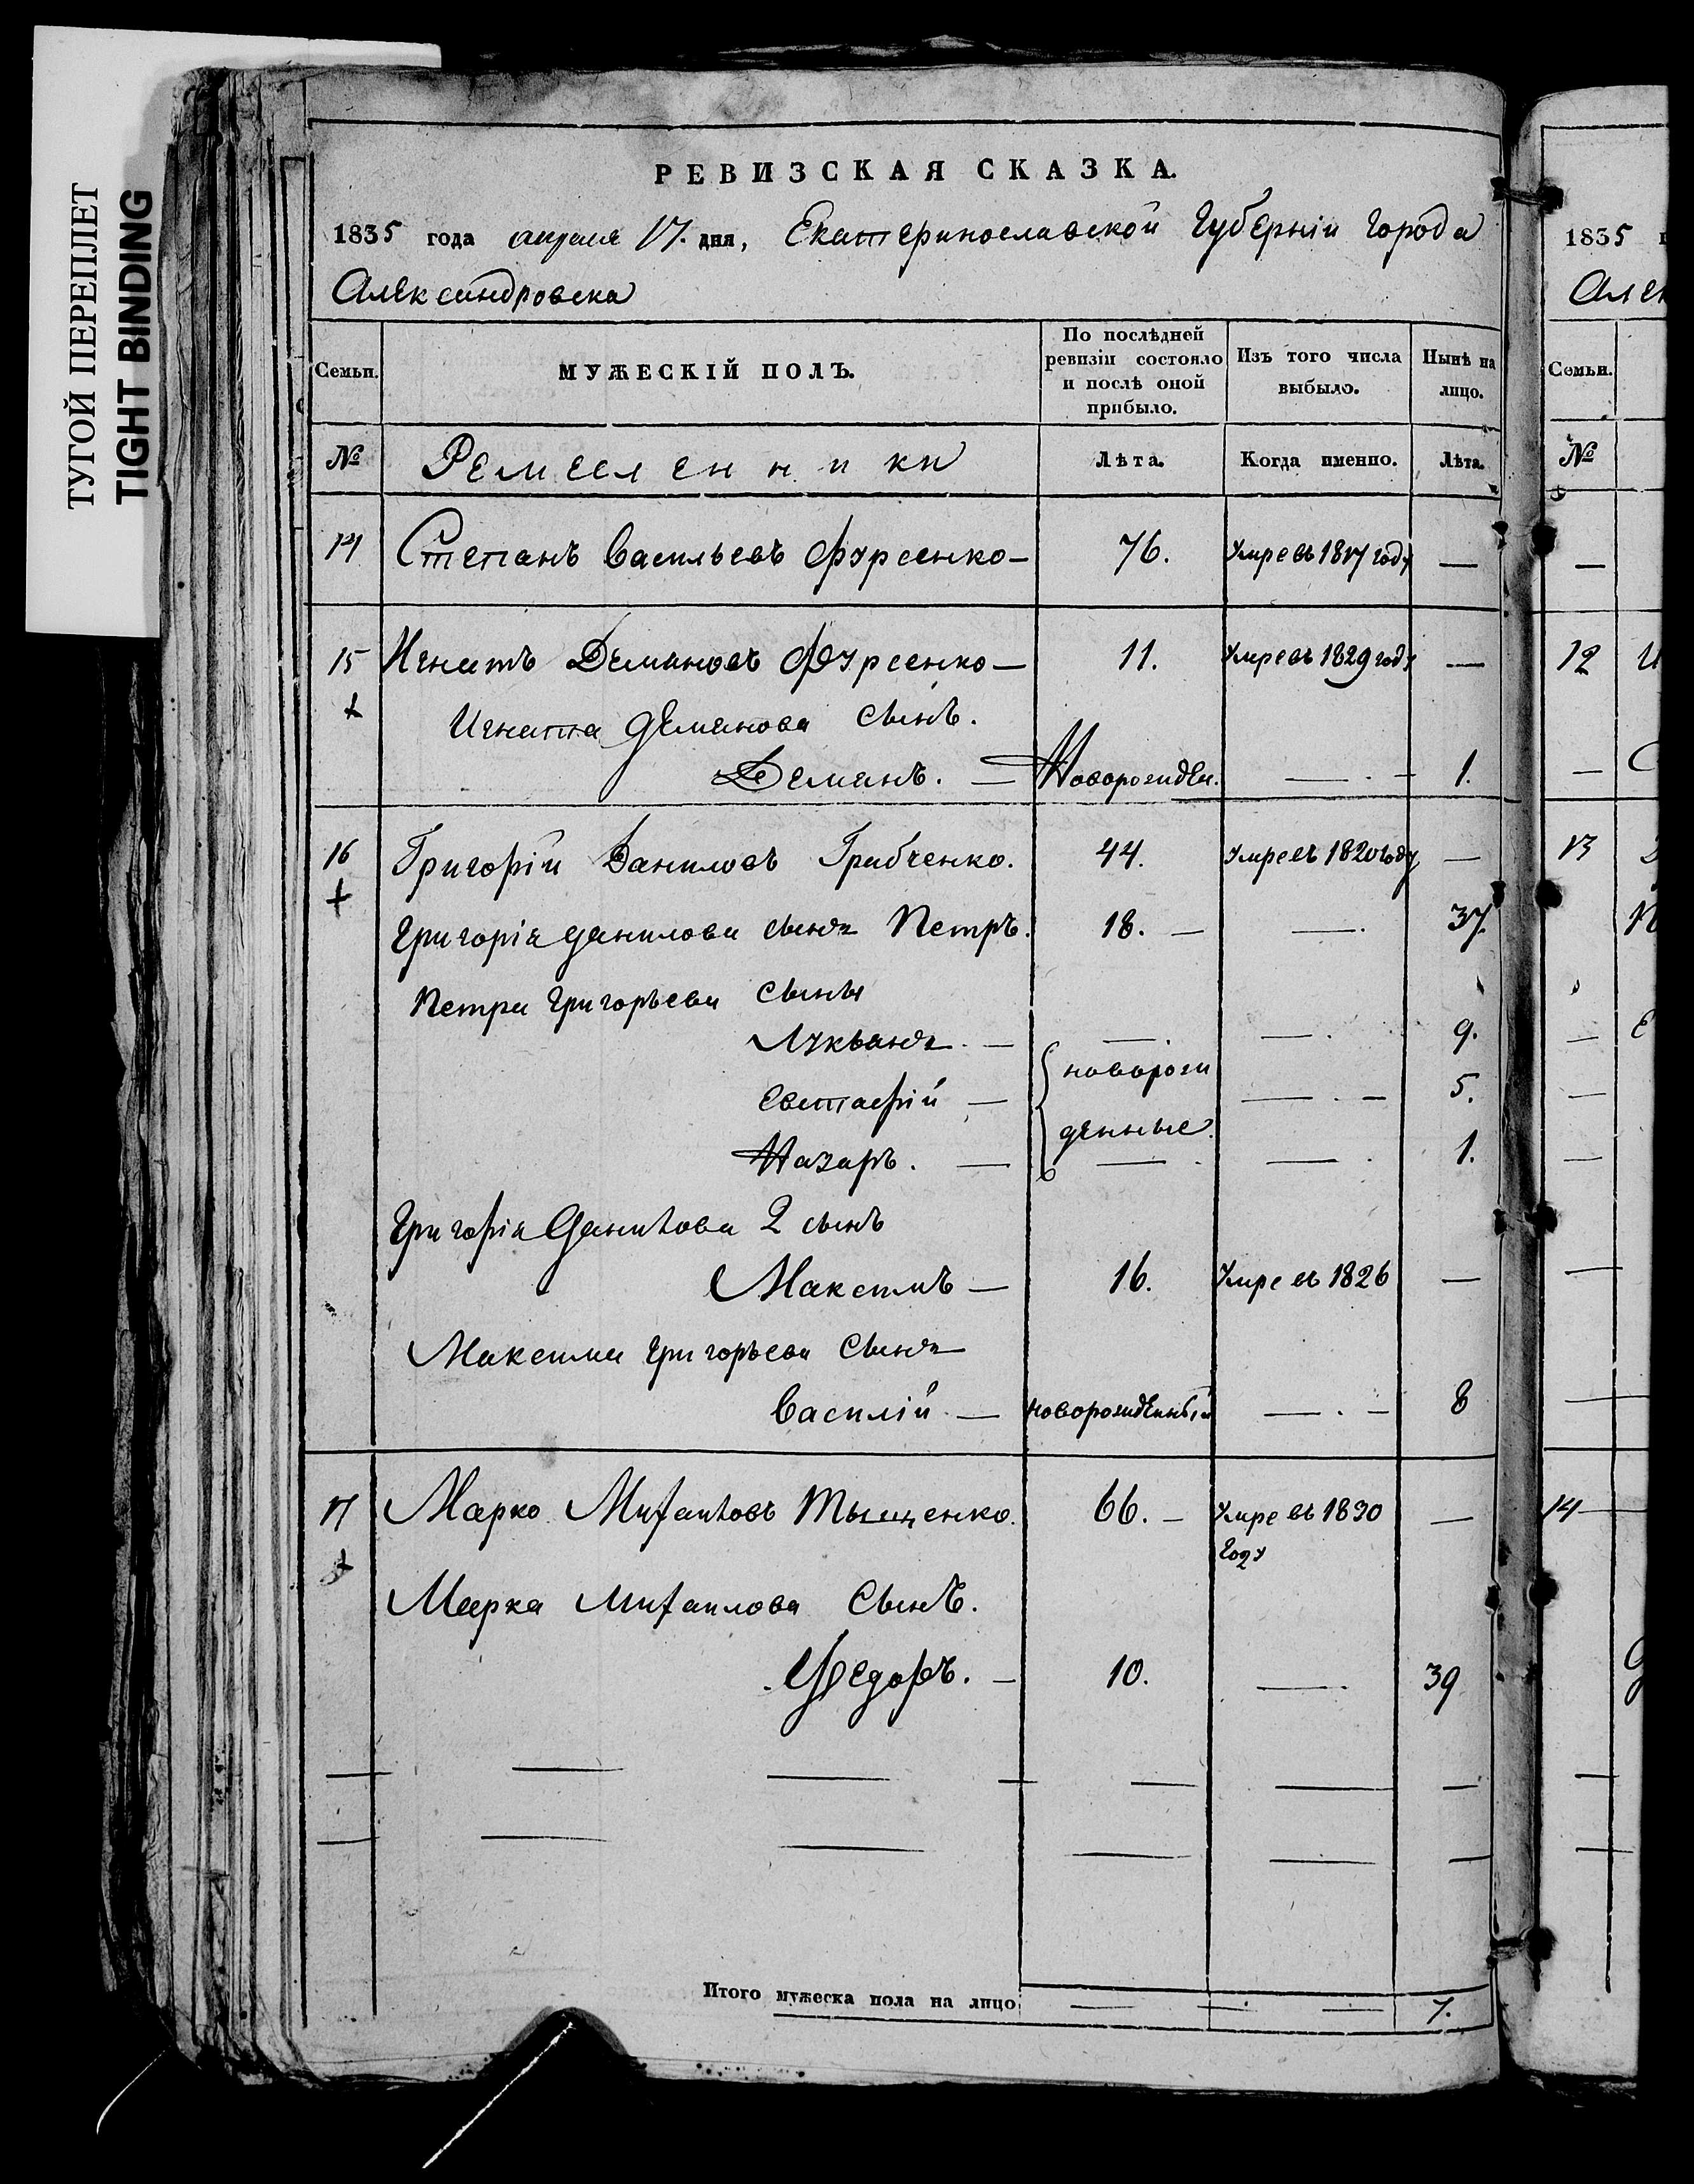 ТУГОЙ ПЕРЕПЛЕТ
TIGHT BINDING
РЕВИЗСКАЯ СКАЗКА.
1835 года апреля 17. дня, Екатеринославской Губерніи Города
Александровска
Семьи. МУЖЕСКІЙ ПОЛЪ. По послѣдней ревизіи состояло и послѣ оной прибыло. Изъ того числа выбыло. Нынѣ на лицо.
№ Ремесленники Лѣта. Когда именно. Лѣта.
14 Степанъ Васильевъ Фурсенко — 76. Умре въ 1817 году —
15 Игнатъ Демяновъ Фурсенко — 11. Умре въ 1829 году —
Игната Демянова сынъ.
Демянъ. — Новорожден. — . — 1.
16 Григорій Даниловъ Грибченко. 44. Умре въ 1820 году —
Григорія Данилова сынъ Петръ. 18. — — . 37.
Петра Григорьева сыны
Лукьянъ. — — . — . 9.
новорож
Евстафій — — . — 5.
денные.
Назаръ. — — . — . 1.
Григорія Данилова 2 сынъ
Максимъ — 16. Умре въ 1826 —
Максима Григорьева сынъ
Василій. — новорожденный — . — 8
17 Марко Михаиловъ Тыщенко. 66. — Умре въ 1830 —
году
Марка Михаилова Сынъ.
Федоръ. — 10. — . 39
Итого мужеска пола на лицо — — — 7.
1835
Алек
Семьи.
№
12 И
С
13
П
Е
14